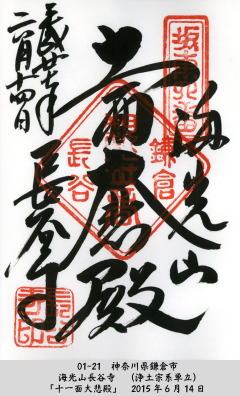 海光山
十一面大悲殿
長谷寺
平成廿七年
六月十四日
鎌倉
長谷
01-21　神奈川県鎌倉市
海光山長谷寺　（浄土宗系単立）
「十一面大悲殿」　2015年6月14日